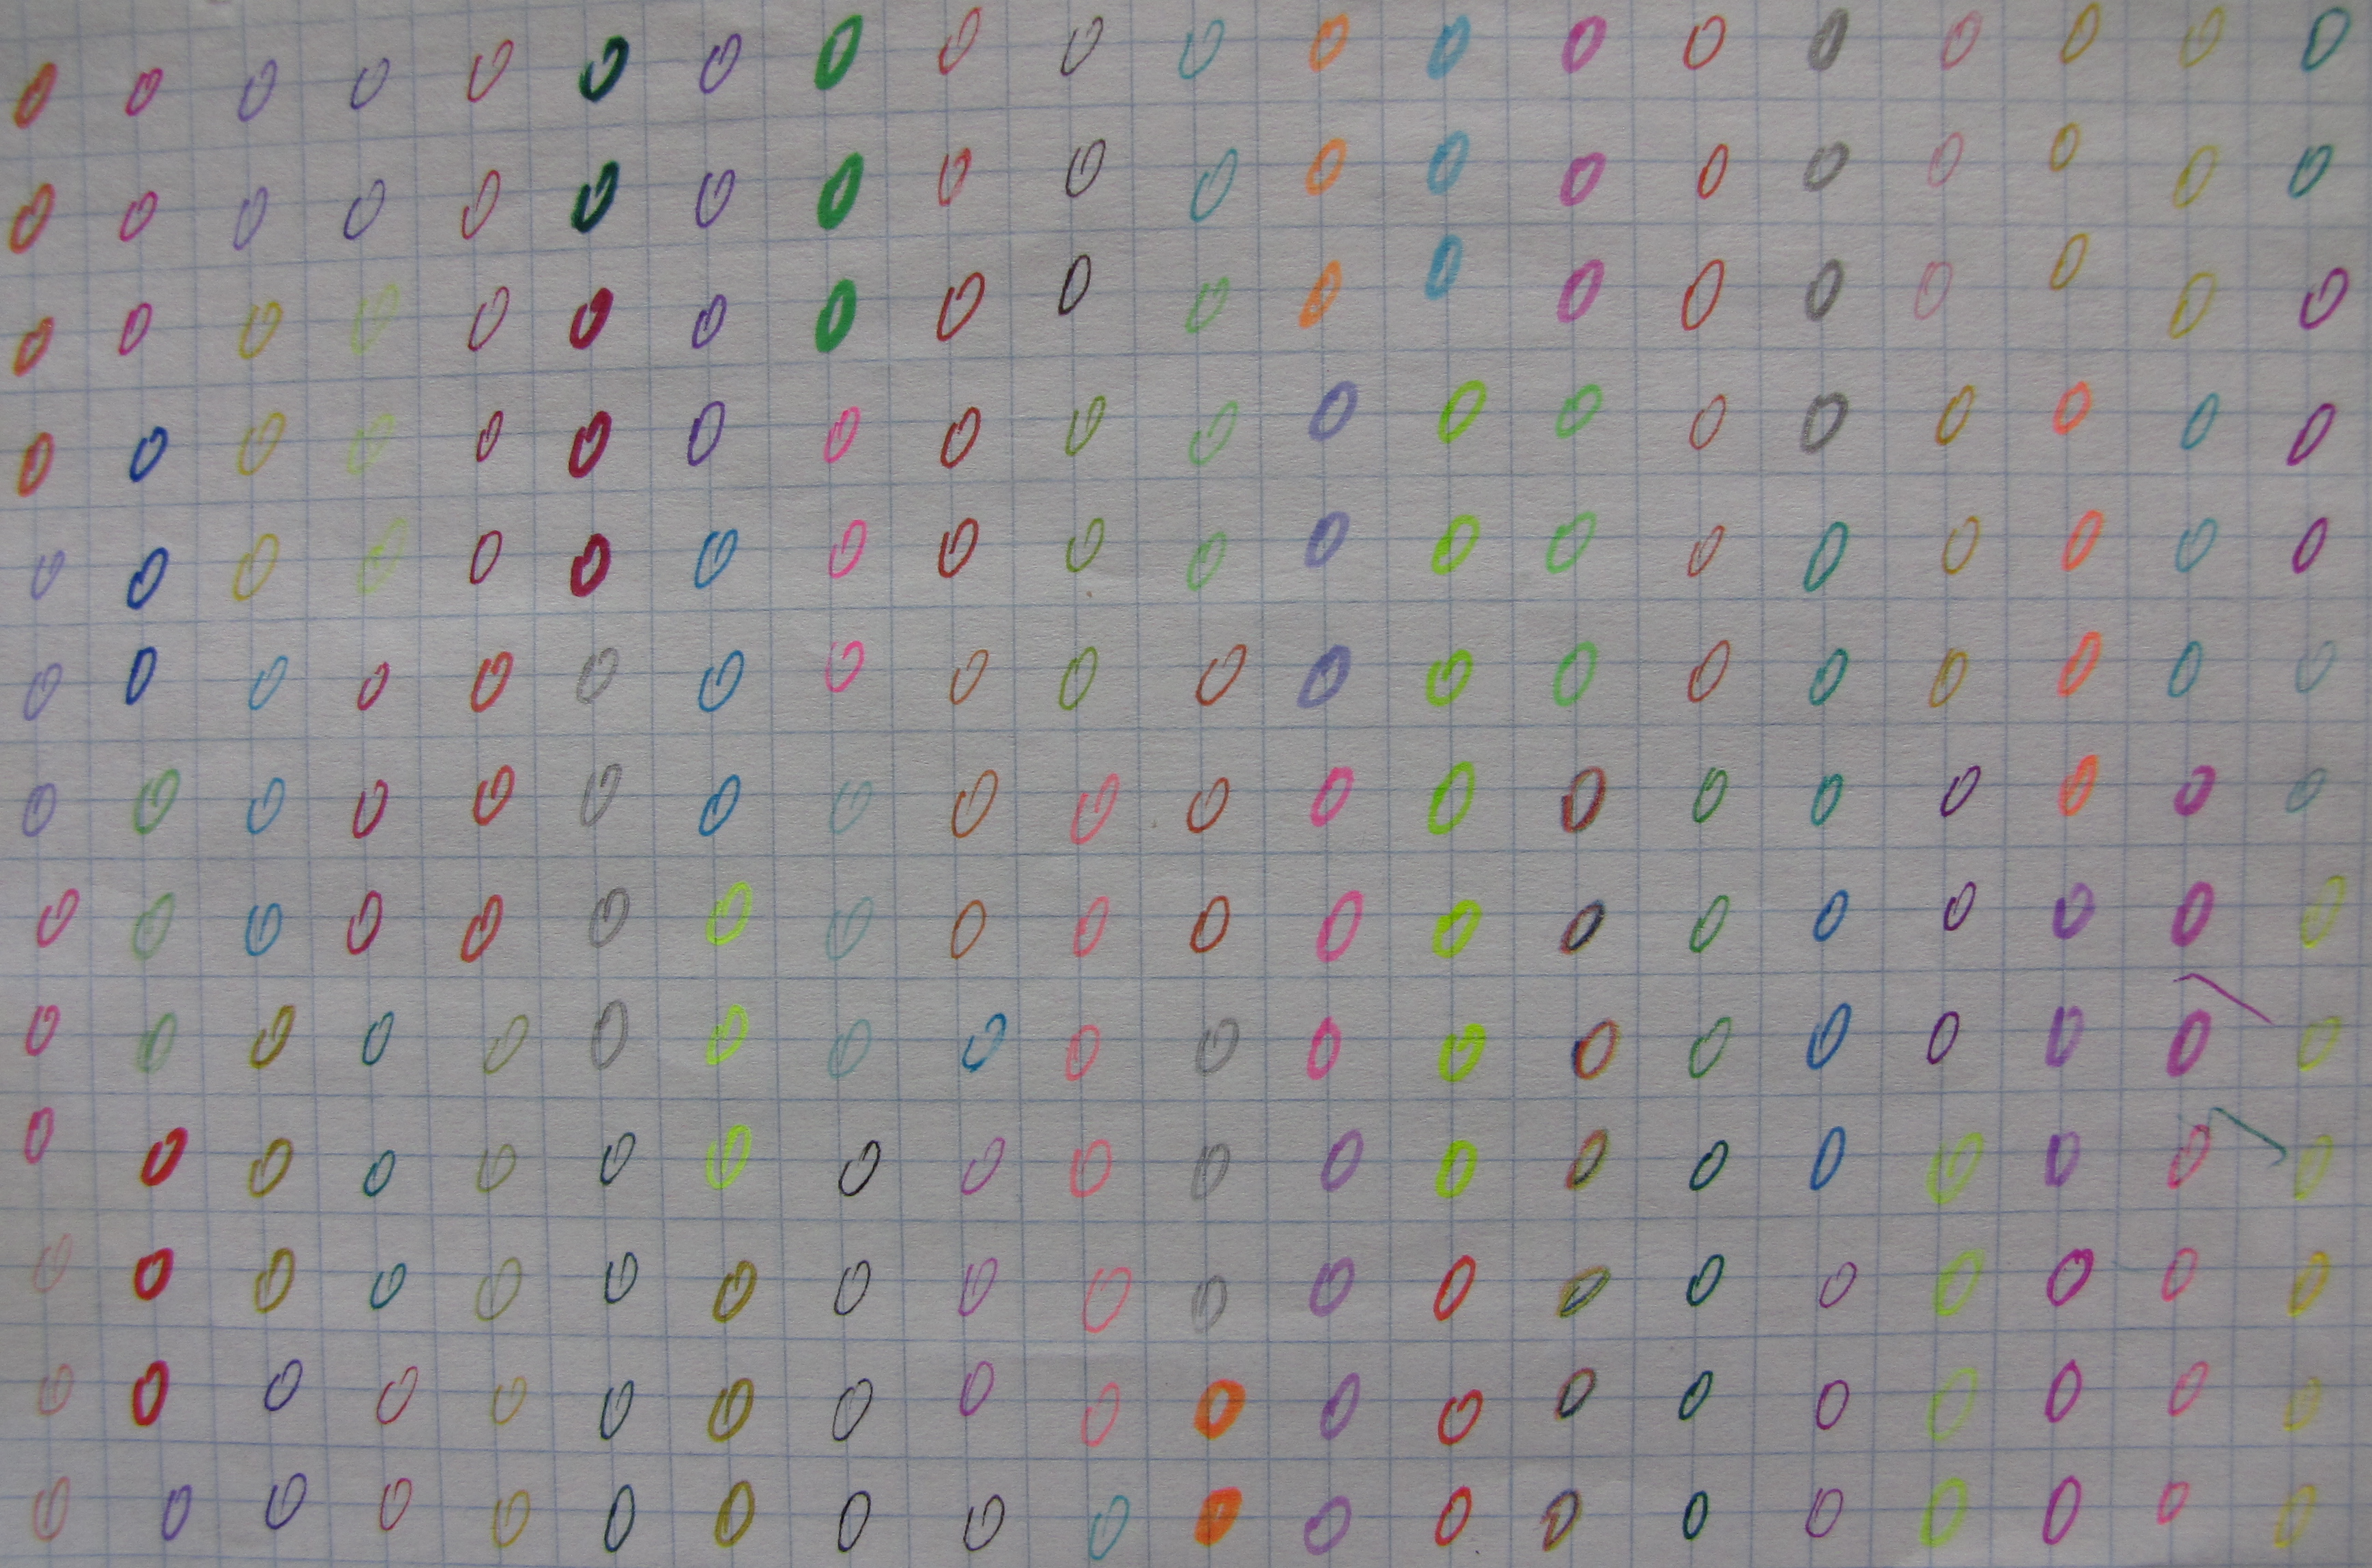 0 0 0 0 0 0 0 0 0 0 0 0 0 0 0 0 0 0 0 0
0 0 0 0 0 0 0 0 0 0 0 0 0 0 0 0 0 0 0 0
0 0 0 0 0 0 0 0 0 0 0 0 0 0 0 0 0 0 0 0
0 0 0 0 0 0 0 0 0 0 0 0 0 0 0 0 0 0 0 0
0 0 0 0 0 0 0 0 0 0 0 0 0 0 0 0 0 0 0 0
0 0 0 0 0 0 0 0 0 0 0 0 0 0 0 0 0 0 0 0
0 0 0 0 0 0 0 0 0 0 0 0 0 0 0 0 0 0 0 0
0 0 0 0 0 0 0 0 0 0 0 0 0 0 0 0 0 0 0 0
0 0 0 0 0 0 0 0 0 0 0 0 0 0 0 0 0 0 0 0
0 0 0 0 0 0 0 0 0 0 0 0 0 0 0 0 0 0 0 0
0 0 0 0 0 0 0 0 0 0 0 0 0 0 0 0 0 0 0 0
0 0 0 0 0 0 0 0 0 0 0 0 0 0 0 0 0 0 0 0
0 0 0 0 0 0 0 0 0 0 0 0 0 0 0 0 0 0 0 0